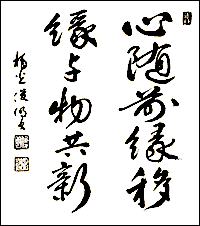 心随前縁移
縁与物共新